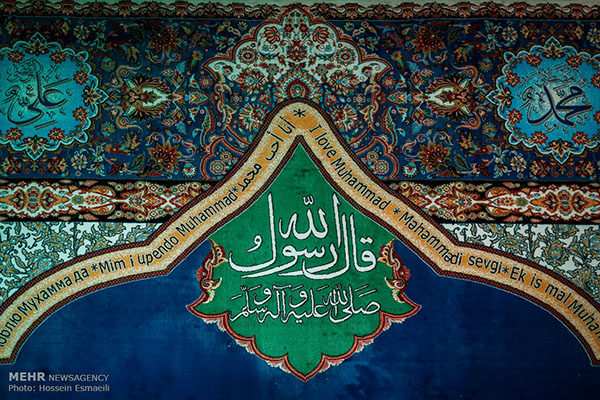 محمد
علي
облю Мухамма да * Mim i upendo Muhammad * أنا أحب محمد * I love Muhammad * Məhəmmədi sevgi * Ek is mal Muha
قال رسول الله
صلى الله عليه وآله وسلم
MEHR NEWSAGENCY
Photo: Hossein Esmaeili